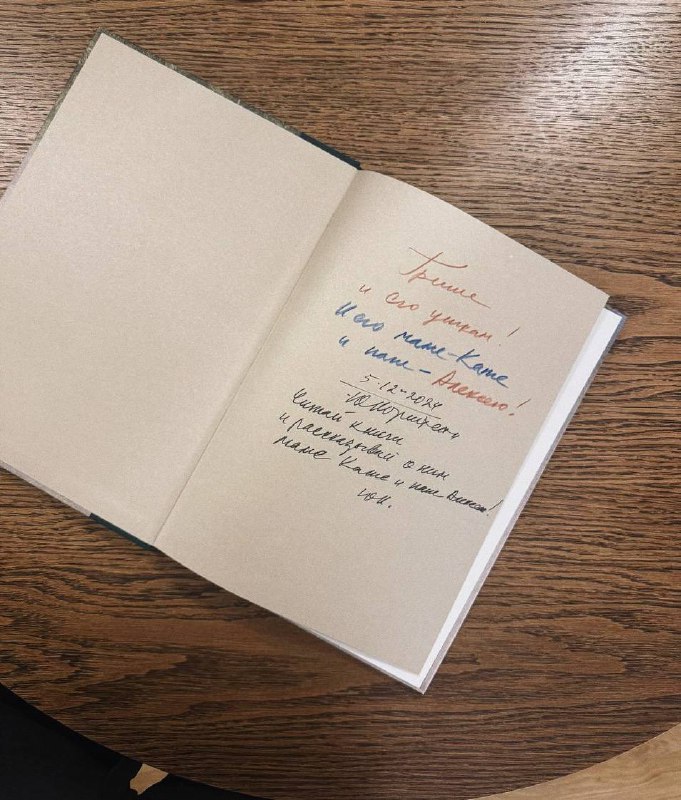 Грише
и его ушкам!
И его маме-Кате
и папе-Алексею!
5-12-2024
Читай книги
и рассказывай о них
маме Кате и папе Алексею!
ЮН.